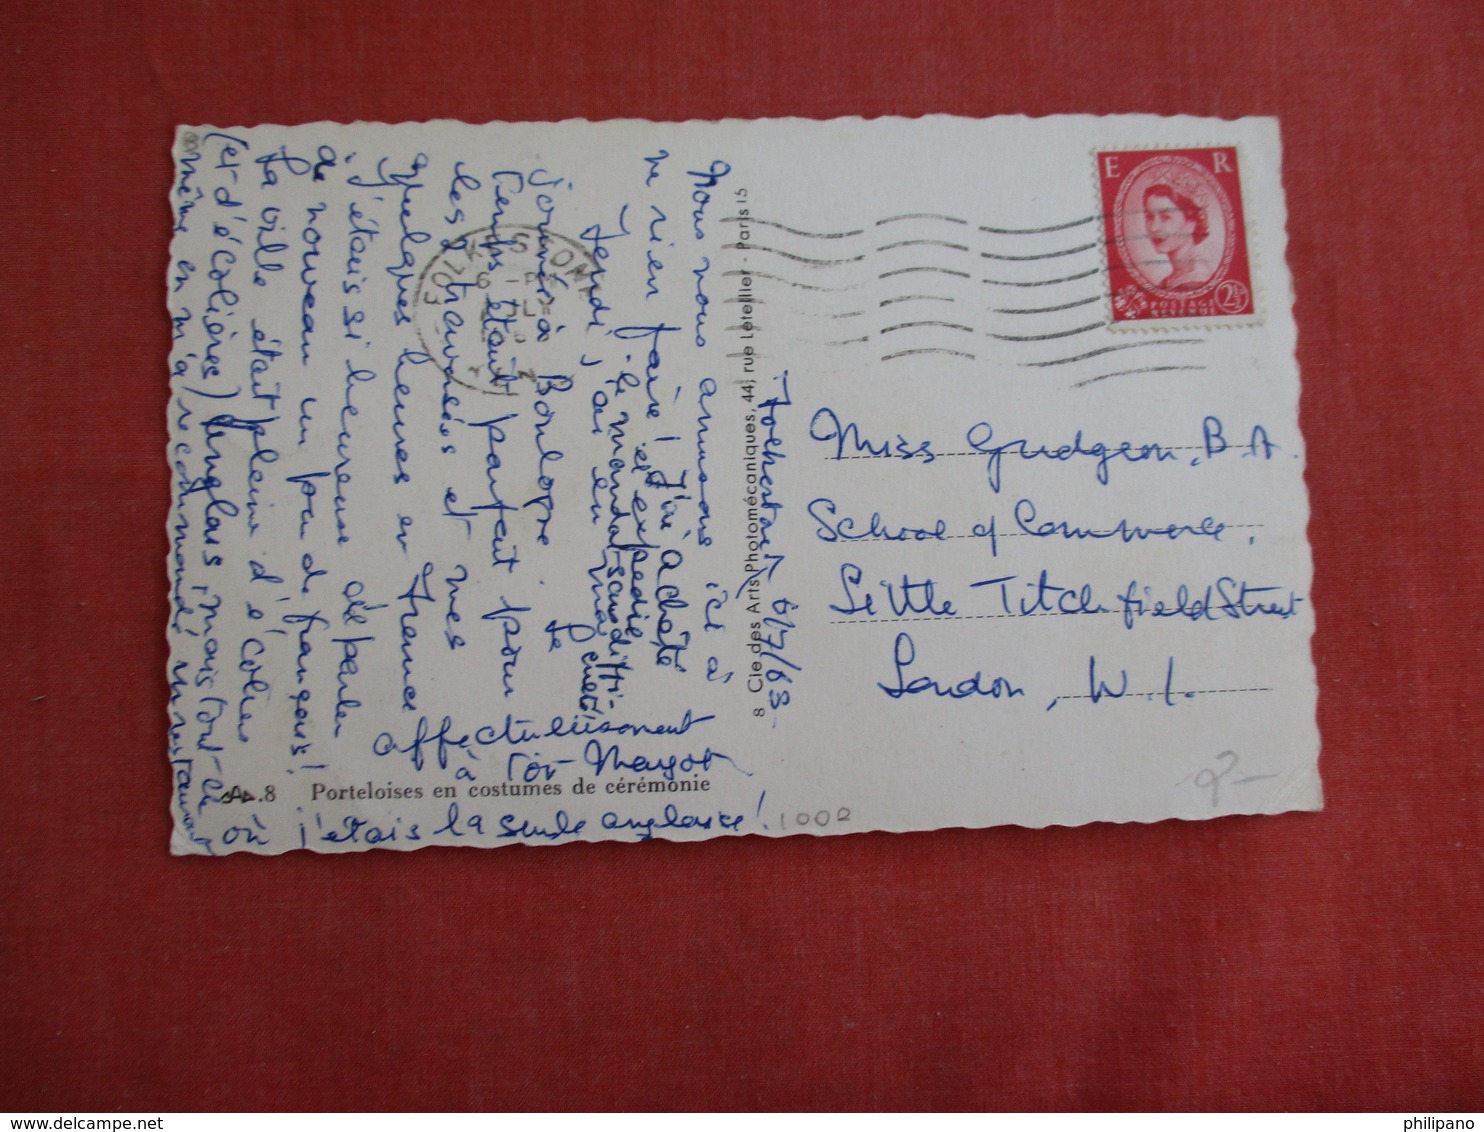 Folkestone, 6/7/63
Nous nous amusons ici à
ne rien faire! J'ai acheté
et expédié
le mandat-
Jeudi, j'ai eu une
journée à Boulogne. Le
temps était parfait pour
les traversées et mes
quelques heures en France
j'étais si heureuse de parler
de nouveau un peu de français!
La ville était pleine d'écoliers
(et d'écolières) anglais, mais tout-à-
même on m'a recommandé un restaurant
où
j'étais la seule anglaise!
affectueusement
à toi Margot
A.8 Porteloises en costumes de cérémonie
1002
8 Cie des Arts Photomécaniques, 44, rue Letellier - Paris 15
FOLKESTONE
E R
POSTAGE
REVENUE
2½D
Miss Gudgeon, B.A.
School of Commerce,
Little Titchfield Street
London, W.1.
2-
philipano